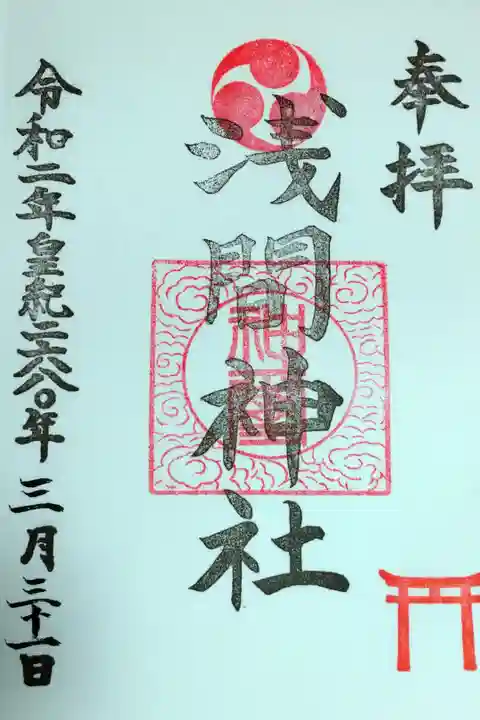 奉拝
浅間神社
令和二年皇紀二六八〇年三月三十一日